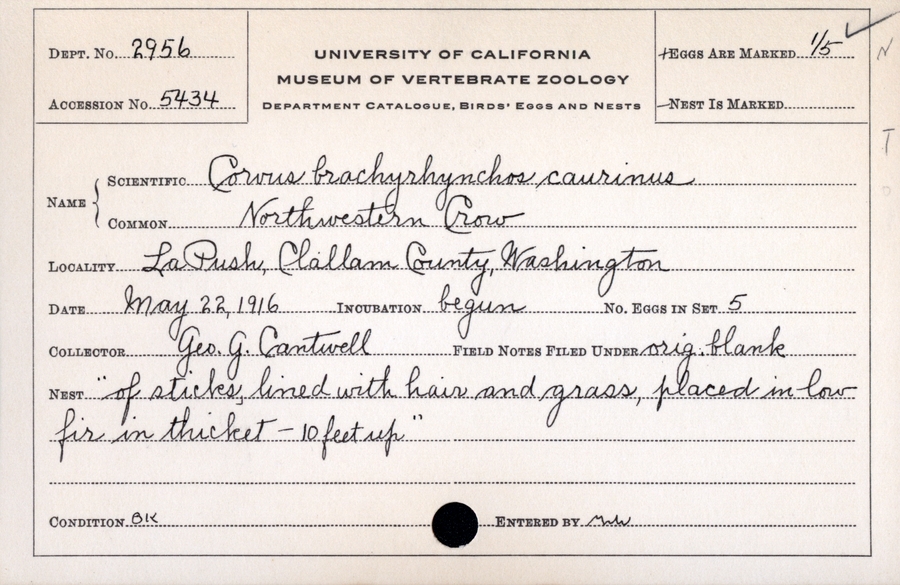 Dept. No. 2956
Accession No. 5434
UNIVERSITY OF CALIFORNIA
MUSEUM OF VERTEBRATE ZOOLOGY
Department Catalogue, Birds' Eggs and Nests
+Eggs Are Marked 1/5
—Nest Is Marked
N
T
Name { Scientific Corvus brachyrhynchos caurinus
Common Northwestern Crow
Locality La Push, Clallam County, Washington
Date May 22, 1916 Incubation begun No. Eggs in Set 5
Collector Geo. G. Cantwell Field Notes Filed Under orig. blank
Nest "of sticks, lined with hair and grass, placed in low
fir in thicket – 10 feet up"
Condition Entered by